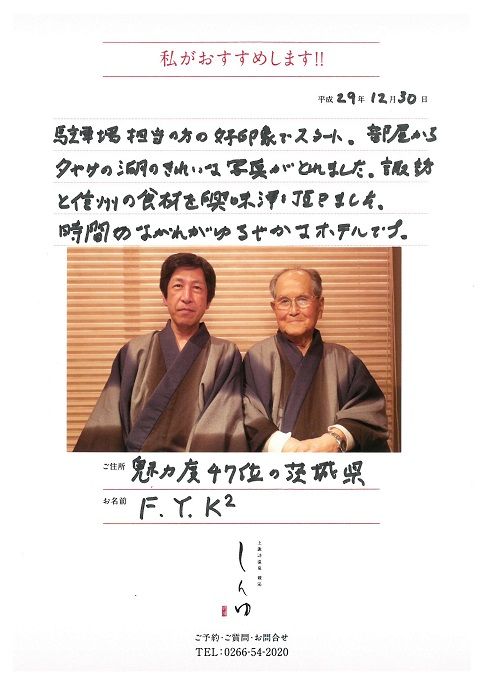 私がおすすめします!!
平成 29年 12月 30日
駐車場担当の方の好印象でスタート。部屋から
夕やけの湖のきれいな写真がとれました。諏訪
と信州の食材を興味津々頂きました。
時間のながれがゆるやかなホテルです。
ご住所 魅力度47位の茨城県
お名前 F.Y.K²
上諏訪温泉
しんゆ
ご予約・ご質問・お問合せ
TEL:0266-54-2020